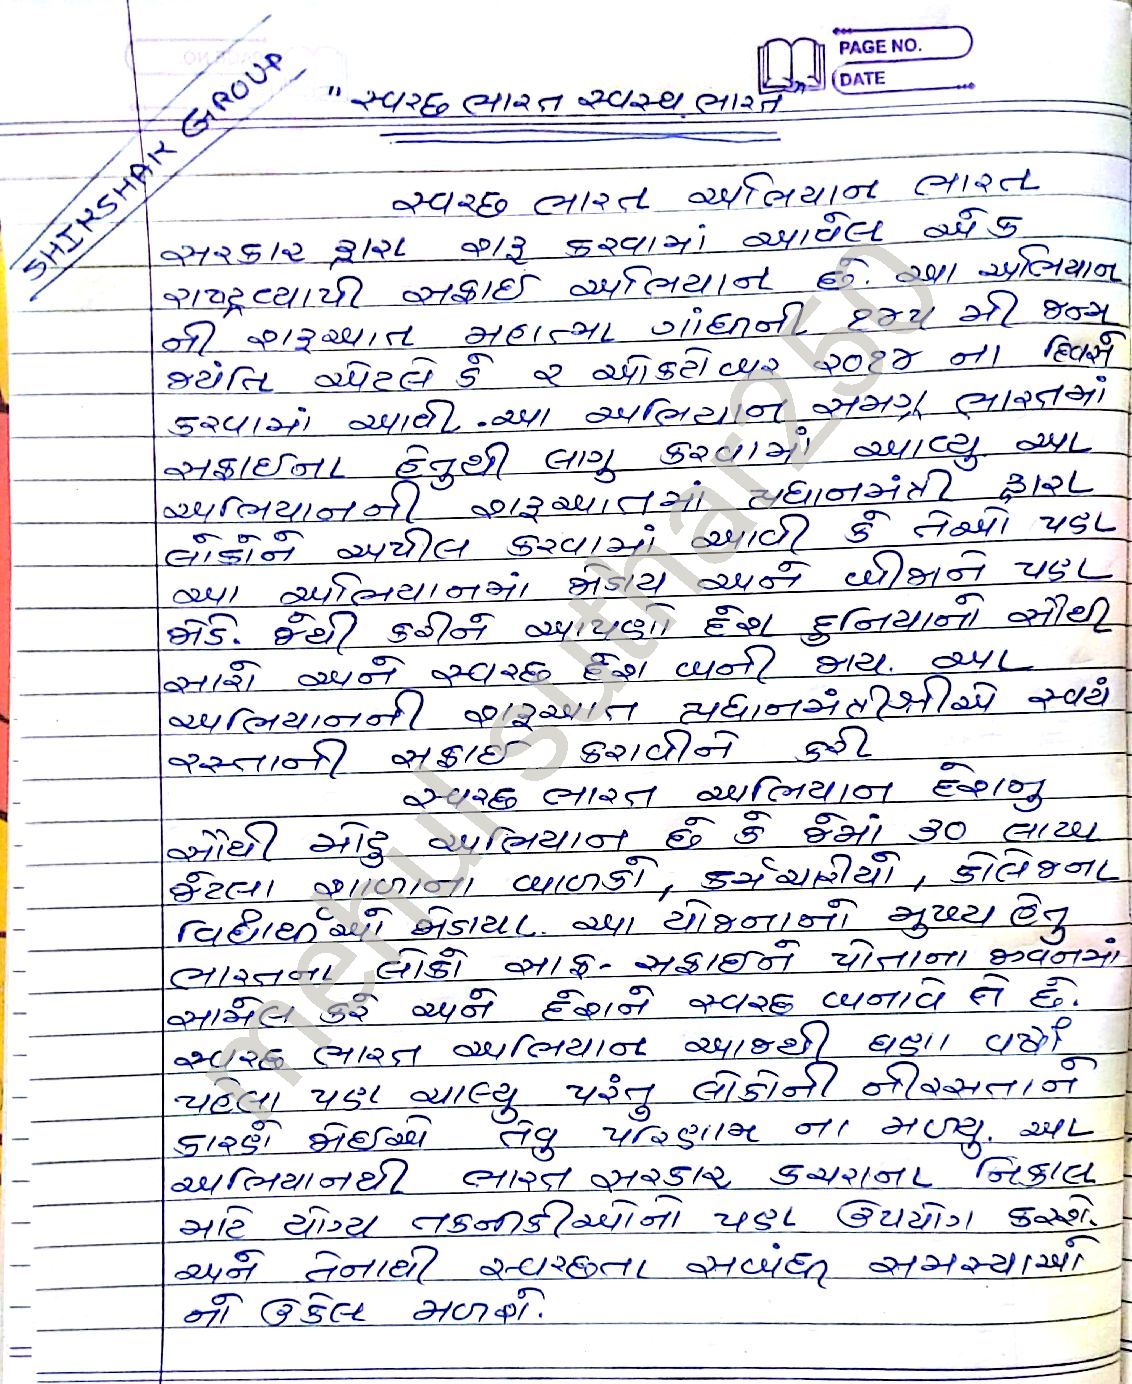 PAGE NO.
DATE
SHIKSHAK GROUP
" સ્વચ્છ ભારત સ્વસ્થ ભારત "
સ્વચ્છ ભારત અભિયાન ભારત
સરકાર દ્વારા શરૂ કરવામાં આવેલ એક
રાષ્ટ્રવ્યાપી સફાઈ અભિયાન છે. આ અભિયાન
ની શરૂઆત મહાત્મા ગાંધીની ૧૪૫ મી જન્મ
જયંતિ એટલે કે ૨ ઓક્ટોબર ૨૦૧૪ ના દિવસે
કરવામાં આવી. આ અભિયાન સમગ્ર ભારતમાં
સફાઈના હેતુથી લાગુ કરવામાં આવ્યુ. આ
અભિયાનની શરૂઆતમાં પ્રધાનમંત્રી દ્વારા
લોકોને અપીલ કરવામાં આવી કે તેઓ પણ
આ અભિયાનમાં જોડાય અને બીજાને પણ
જોડે. જેથી કરીને આપણો દેશ દુનિયાનો સૌથી
સારો અને સ્વચ્છ દેશ બની જાય. આ
અભિયાનની શરૂઆત પ્રધાનમંત્રીશ્રીએ સ્વયં
રસ્તાની સફાઈ કરાવીને કરી
સ્વચ્છ ભારત અભિયાન દેશનુ
સૌથી મોટુ અભિયાન છે કે જેમાં ૩૦ લાખ
જેટલા શાળાના બાળકો, કર્મચારીયો, કોલેજના
વિદ્યાર્થીઓ જોડાયા. આ યોજનાનો મુખ્ય હેતુ
ભારતના લોકો સાફ-સફાઈને પોતાના જીવનમાં
સામેલ કરે અને દેશને સ્વચ્છ બનાવે તે છે.
સ્વચ્છ ભારત અભિયાન આજથી ઘણા વર્ષો
પહેલા પણ ચાલ્યુ પરંતુ લોકોની નીરસતાને
કારણે જોઈએ તેવુ પરિણામ ના મળ્યુ. આ
અભિયાનથી ભારત સરકાર કચરાના નિકાલ
માટે યોગ્ય તકનીકીઓનો પણ ઉપયોગ કરશે.
અને તેનાથી સ્વચ્છતા સબંધી સમસ્યાઓ
નો ઉકેલ મળશે.
mehul suthar250